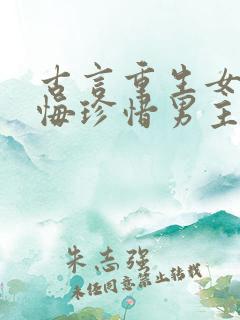 古言重生女
悔珍惜男主
朱志强
未经同意禁止转载